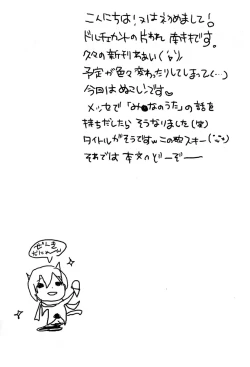 こんにちは!又ははじめまして!
ドルチェカントの片われ 南です。
久々の新刊ああい('ω')
予定が色々変わったりしてしまって(…)
今回はぬこいです
メッセで「みんなのうた」の話を
持ちだしたら そうなりました(笑)
タイトルがそうです この曲スキー
それでは 本文へどーぞー